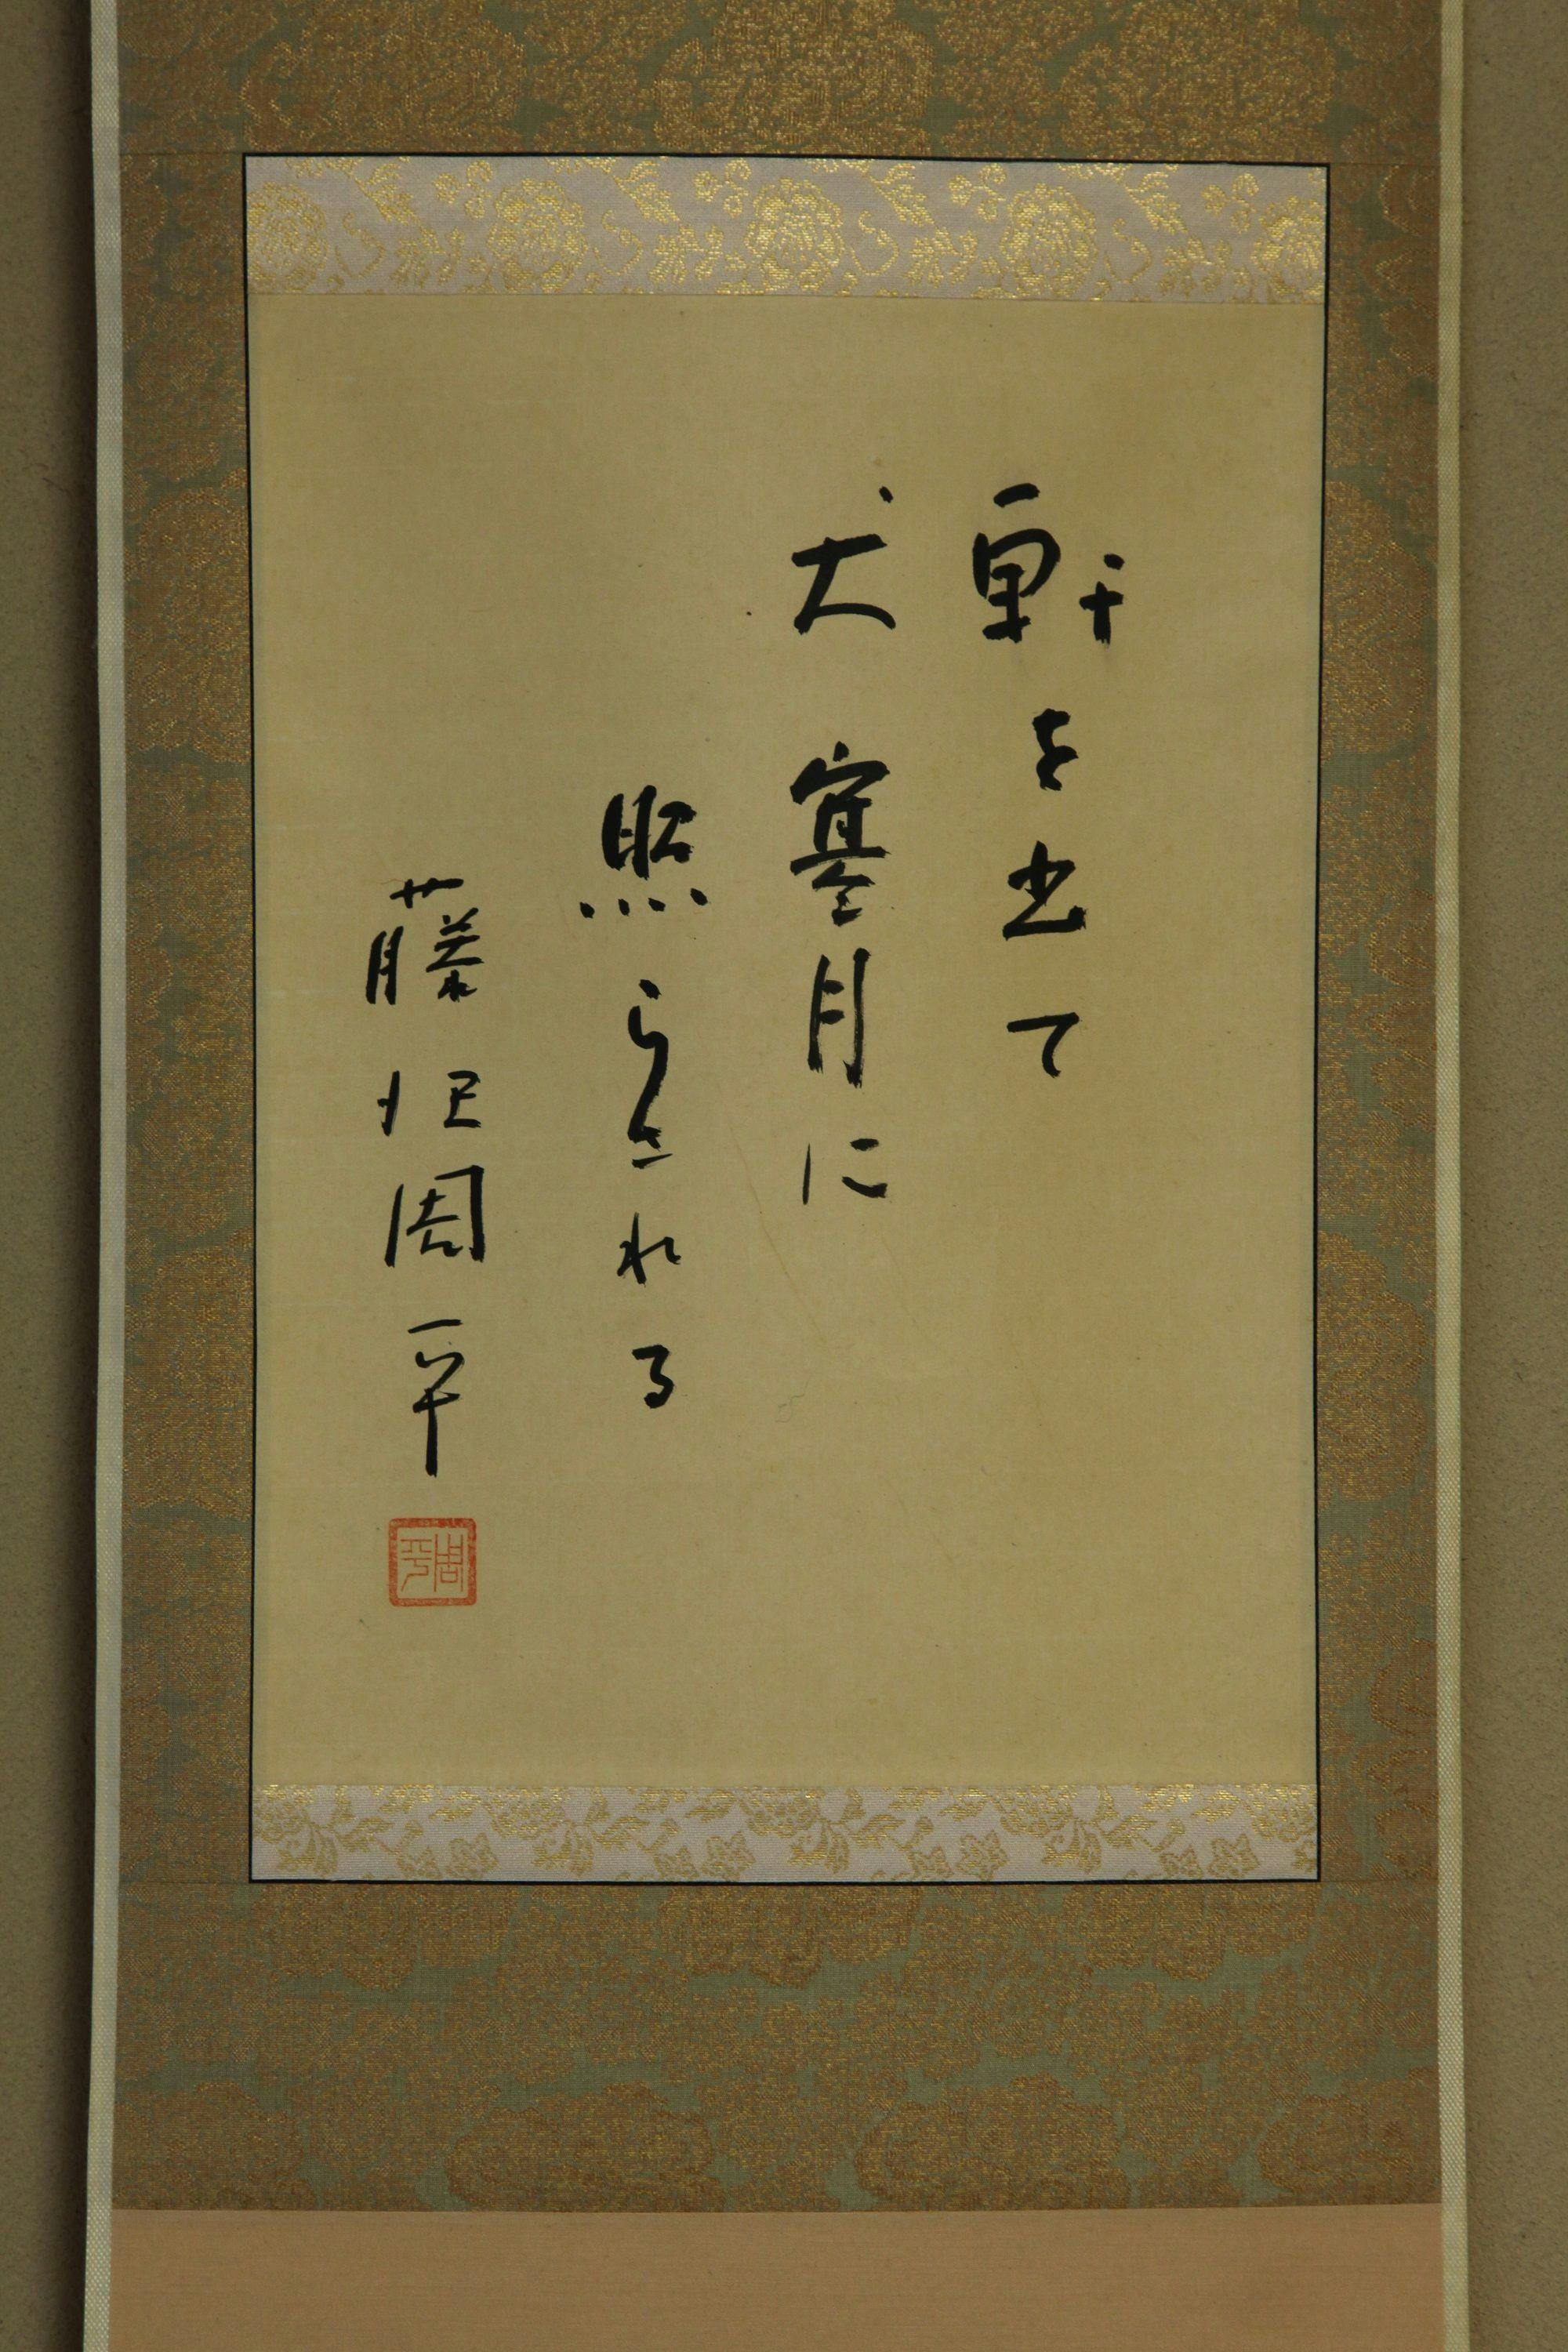 軒を出て
犬寒月に
照らされる
藤沢周平
周平